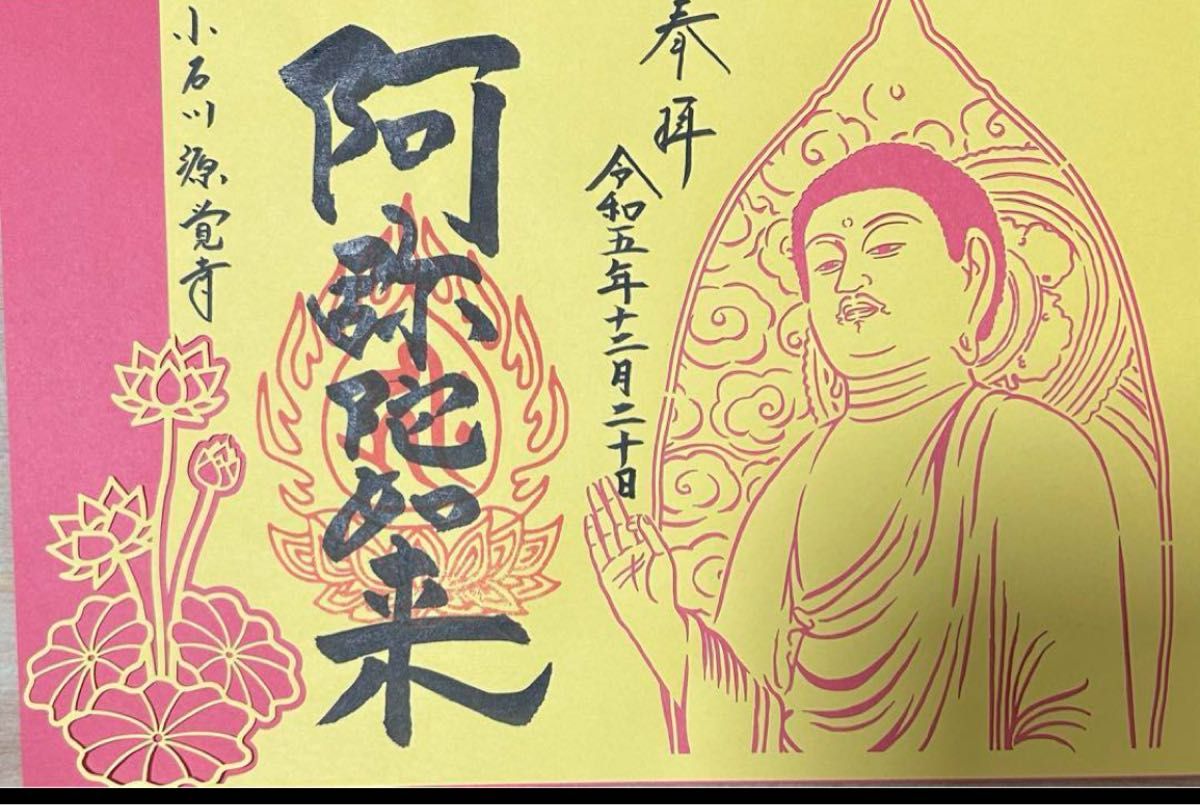 奉拝
令和五年十二月二十日
阿弥陀如来
小石川源覚寺